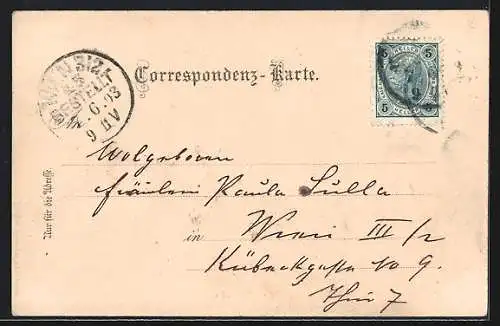 Correspondenz-Karte.
5 HELLER 5
5 5
Nur für die Adresse.
6.03
9 V
Wolgeboren
Fräulein Paula Sulla
in Wien III/2
Kübeckgasse No 9.
Thür 7